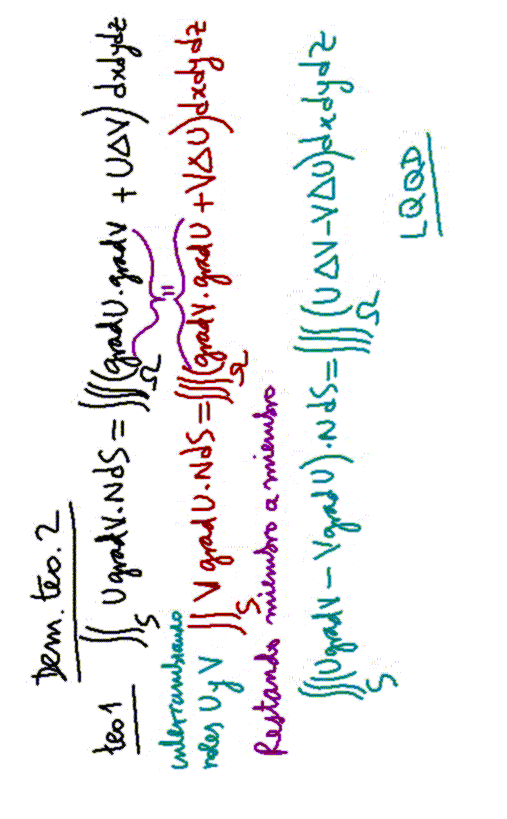 Dem. teo. 2
teo 1 ∬_S U grad V . N dS = ∭_Ω (grad U . grad V + U Δ V) dx dy dz
intercambiando roles U y V ∬_S V grad U . N dS = ∭_Ω (grad V . grad U + V Δ U) dx dy dz
=
Restando miembro a miembro
∭_S (U grad V - V grad U) . N dS = ∭_Ω (U Δ V - V Δ U) dx dy dz
LQQD